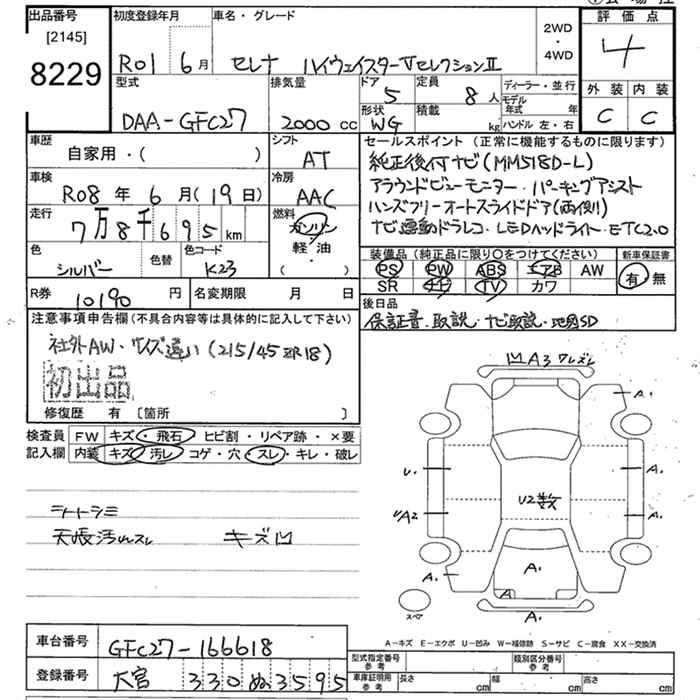 出品番号 [2145] 8229
初度登録年月 R01 6月
車名・グレード セレナ ハイウェイスターVセレクションⅡ
2WD・4WD
評価点 4
型式 DAA-GFC27
排気量 2000cc
ドア 5 形状 WG
定員 8人 積載 kg
ディーラー・並行
モデル年式 年
ハンドル 左・右
外装 C 内装 C
車歴 自家用・( )
シフト AT
車検 R08年6月(19日)
冷房 AAC
走行 7万8千695km
燃料 ガソリン・軽油 ( )
色 シルバー 色替 色コード K23
R券 10190円 名変期限 月 日
セールスポイント(正常に機能するものに限ります)
純正後付ナビ(MM518D-L)
アラウンドビューモニター・パーキングアシスト
ハンズフリーオートスライドドア(両側)
ナビ連動ドラレコ・LEDヘッドライト・ETC2.0
装備品(純正品に限り○をつけてください) 新車保証書
PS PW ABS エアB AW 有・無
SR ナビ TV カワ
後日品
保証書・取説・ナビ取説・地図SD
注意事項申告欄(不具合内容等は具体的に記入して下さい)
社外AW・サイズ違い(215/45ZR18)
初出品
修復歴 有 [箇所 ]
検査員 FW キズ・飛石・ヒビ割・リペア跡・×要
記入欄 内装 キズ・汚レ・コゲ・穴・スレ・キレ・破レ
シートシミ
天張汚レスレ キズ凹
凹A3ワレズレ
A1
U.
A.
UA2
U2数
A.
A.
A.
A
A.
A.
スペア
A-キズ E-エクボ U-凹み W-補修跡 S-サビ C-腐食 XX-交換済
車台番号 GFC27-166618
登録番号 大宮 330 ぬ 3595
型式指定番号 参考 類別区分番号 参考
車庫証明用 参考 長さ cm 幅 cm 高さ cm